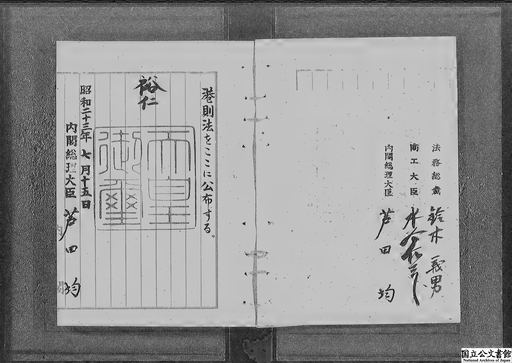 港則法をここに公布する。
裕仁
天皇
御璽
昭和二十三年七月十五日
内閣総理大臣 芦田均
法務総裁 鈴木義男
商工大臣 水谷長三郎
内閣総理大臣 芦田均
国立公文書館
National Archives of Japan